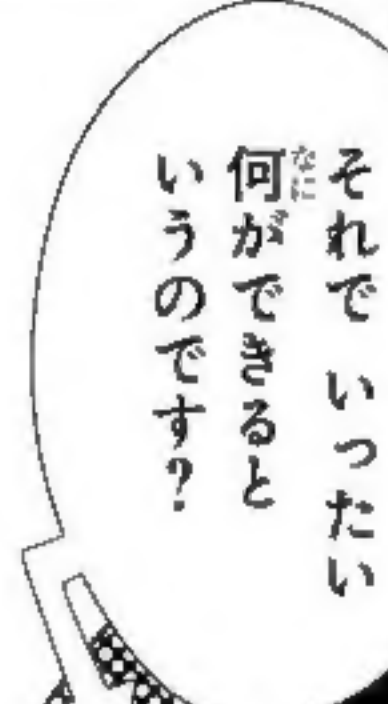 それで いったい
何ができると
いうのです?